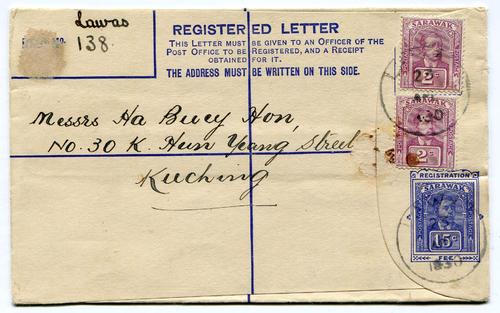 Lawas
No.
138.
REGISTERED LETTER
THIS LETTER MUST BE GIVEN TO AN OFFICER OF THE
POST OFFICE TO BE REGISTERED, AND A RECEIPT
OBTAINED FOR IT.
THE ADDRESS MUST BE WRITTEN ON THIS SIDE.
SARAWAK
22
1930
2c
SARAWAK
2c
Messrs Ha Buey Hon,
No. 30 K. Hun Yeang Street
Kuching
REGISTRATION
SARAWAK
15c
FEE
1930